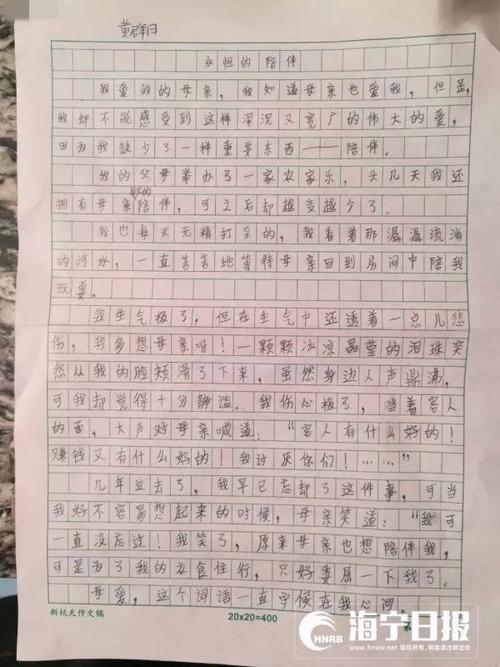 黄群月
永恒的陪伴
我爱我的母亲，我知道母亲也爱我，但是，
我却不能感受到这种深沉又宽广的伟大的爱，
因为我缺少了一种重要东西——陪伴。
我的父母举办了一家农家乐，头几天我还
拥有母亲的陪伴，可之后却越变越少了。
我也每天无精打采的，我看着那潺潺流淌
的河水，一直苦苦地等待母亲回到房间中陪我
玩耍。
我生气极了，但在生气中还透着一点儿悲
伤，我多想母亲呀！一颗颗冰凉晶莹的泪珠突
然从我的脸颊滑了下来，虽然身边人声鼎沸，
可我却觉得十分静谧。我伤心极了，当着客人
的面，大声对母亲喊道：“客人有什么好的！
赚钱又有什么好的！我讨厌你们！……”
几年过去了，我早已忘却了这件事，可当
我好不容易想起来的时候，母亲笑道：“我可
一直没忘过！我笑了，原来母亲也想陪伴我，
可是为了我的衣食住行，只好委屈一下我了。
母爱，这个词语一直守候在我心间。
新杭天作文稿
20×20=400
HNRB
海宁日报